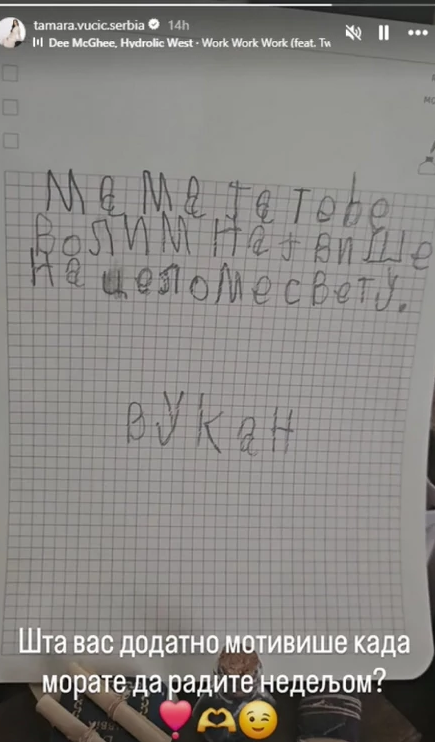 tamara.vucic.serbia 14h
Dee McGhee, Hydrolic West · Work Work Work (feat. Tw
МаМа ја тебе
ВОЛИМ Нај више
На целоМе свету.
ВУКаН
Шта вас додатно мотивише када
морате да радите недељом?